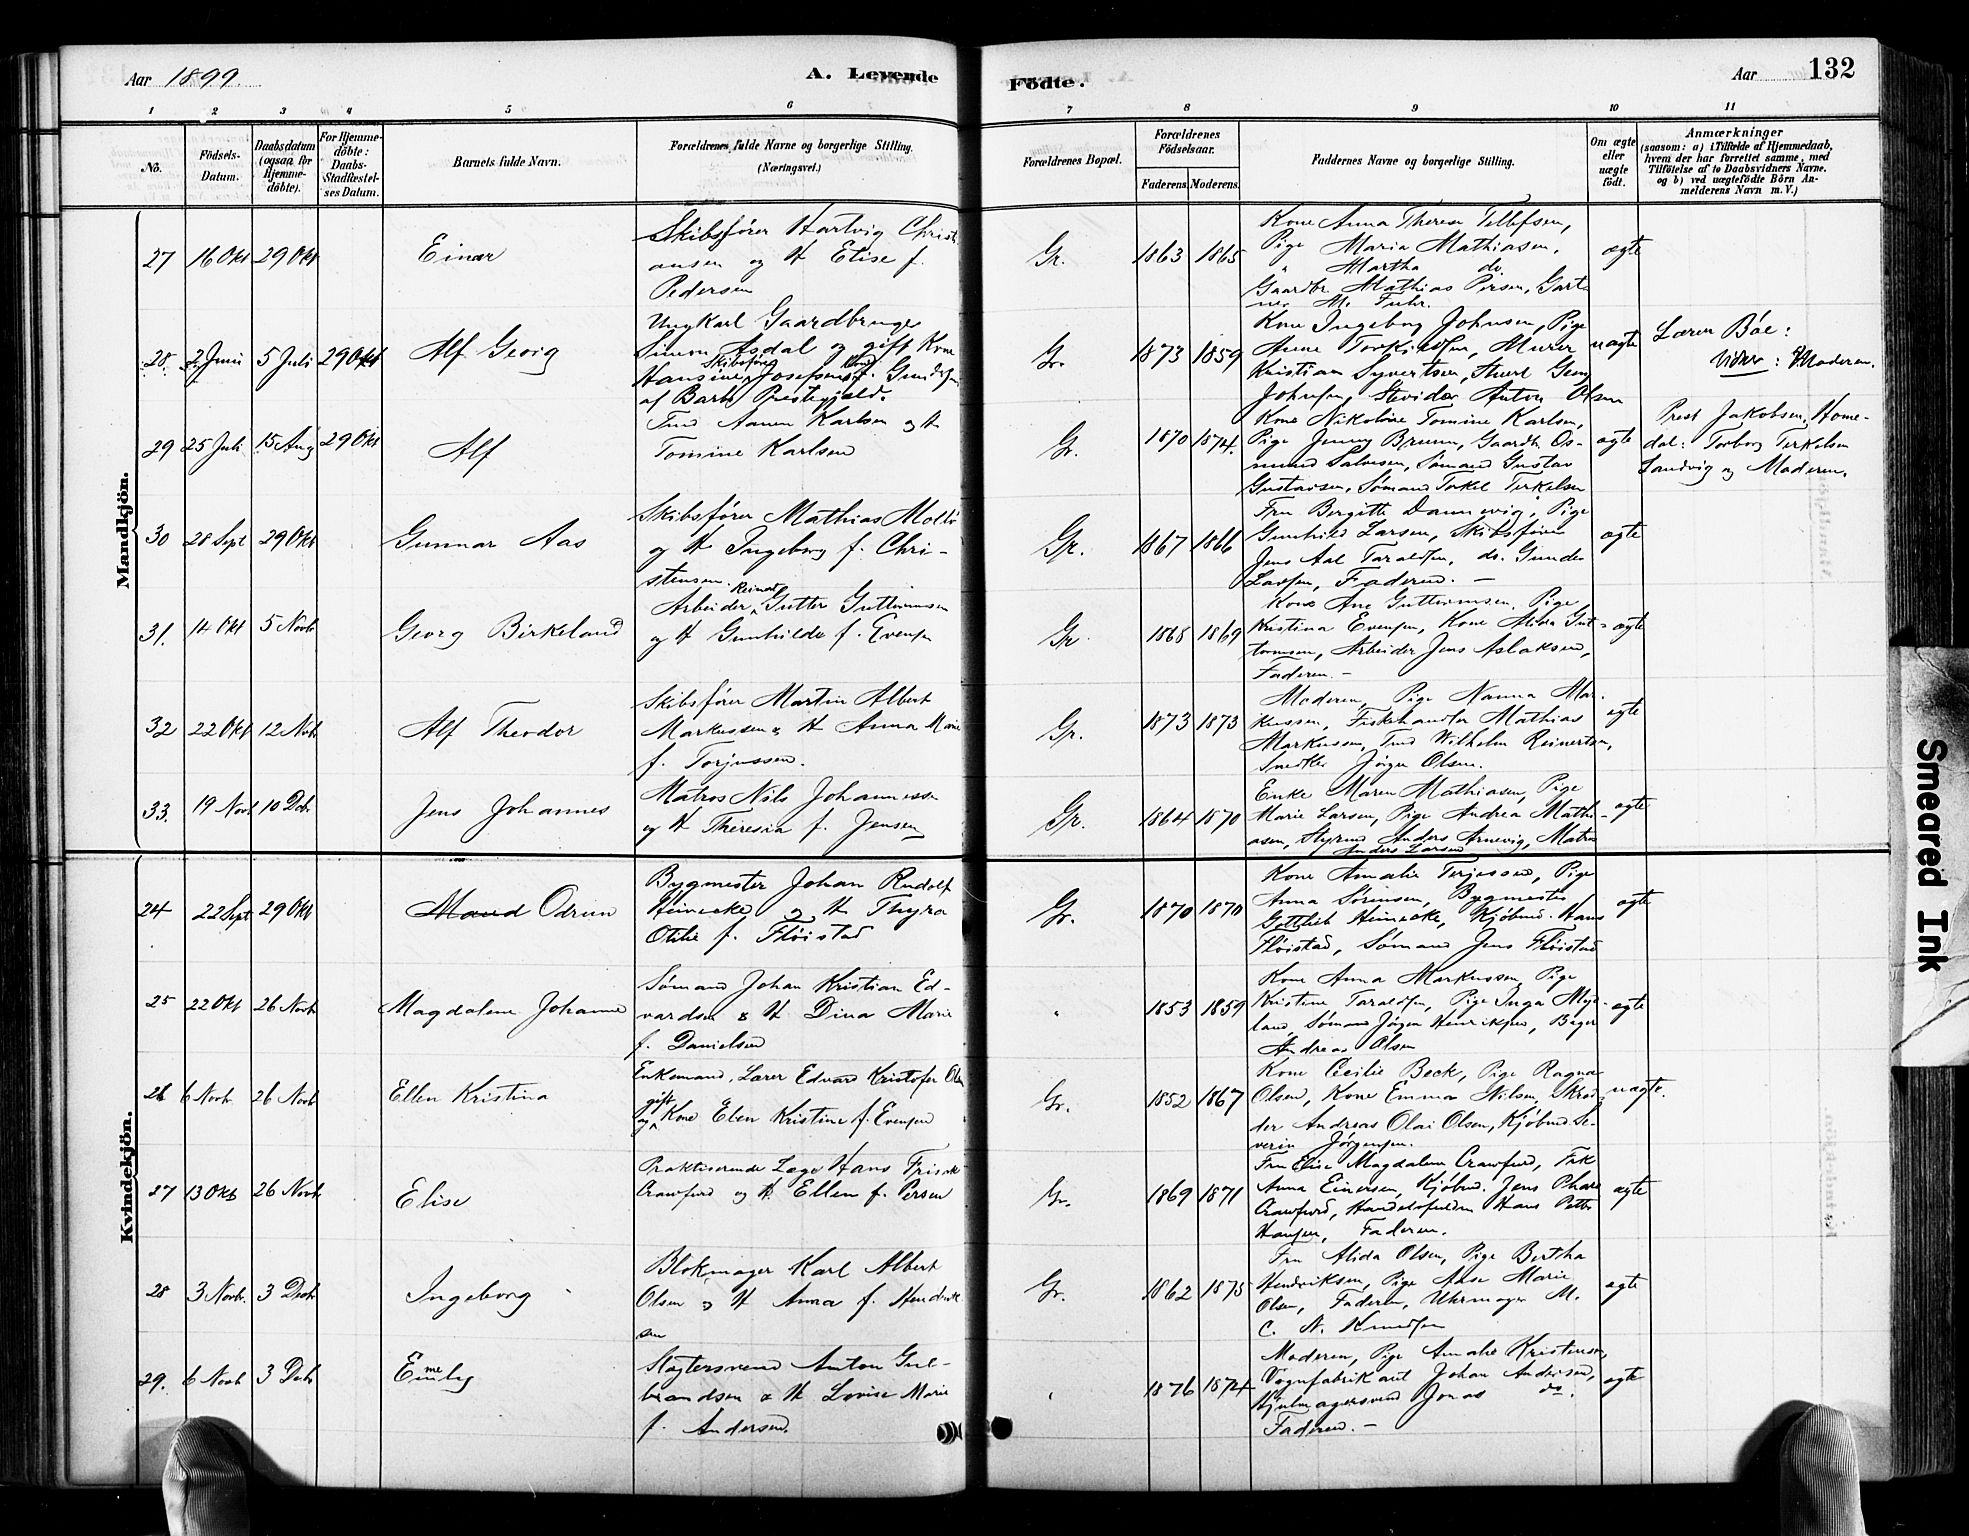 Aar 1899.
A. Levende
Födte.
Aar
132
1 2 3 4 5 6 7 8 9 10 11
No.
Födsels-
Datum.
Daabsdatum
(ogsaa for
Hjemme-
döbte).
For Hjemme-
döbte:
Daabs-
Stadfæstel-
ses Datum.
Barnets fulde Navn.
Forældrenes fulde Navne og borgerlige Stilling.
(Næringsvei.)
Forældrenes Bopæl.
Forældrenes
Födselsaar.
Faderens.
Moderens.
Faddernes Navne og borgerlige Stilling.
Om ægte
eller
uægte
födt.
Anmærkninger
(saasom: a) i Tilfælde af Hjemmedaab,
hvem der har forrettet samme, med
Tilföielse af to Daabsvidners Navne.
og b) ved uægtefödte Börn An-
melderens Navn m. V.)
Mandkjön.
27
16 Okt
29 Okt
Einar
Skibsfører Hartvig Christi
ansen og H Elise f.
Pedersen
Gr.
1863
1865
Kone Anna Therese Tellefsen,
Pige Maria Mathiasen,
" Martha do.
Gaardbr. Mathias Persen, Gart
ner M. Fuhr.
ægte
28.
2 Juni
5 Juli
29 Okt
Alf Georg
Ungkarl Gaardbruger
Simon Asdal og gift Kone
Hansine Josefsen f. Gundersen
Skibsfører
af Barbu Prestegjæld.
Gr.
1873
1859
Kone Ingeborg Johnsen, Pige
Anne Torkildsen, Murer
Kristian Syvertsen, Stuert Georg
Johnsen, Stevidor Anton Olsen
uægte
Lærer Bóe:
Vidner: Moderen.
29
25 Juli
15 Aug
29 Okt
Alf
Tmd Aanen Karlsen og H
Tomine Karlsen
Gr.
1870
1874.
Kone Nikoline Tomine Karlsen,
Pige Jenny Bruun, Gaardb. Os-
mund Salvesen, Sømand Gustav
Gustavsen, Sømand Torkel Terkelsen
ægte
Prest Jakobsen, Home-
dal: Torborg Terkelsen
Sandvig og Moderen.
30
28 Sept
29 Okt
Gunnar Aas
Skibsfører Mathias Molbo
og H Ingeborg f. Chri-
stensen.
Gr.
1867
1866
Fru Bergitte Dannevig, Pige
Gunhild Larsen, Skibsfører
Jens Aal Taraldsen, do. Gunder
Larsen, Faderen. —
ægte
31.
14 Okt
5 Novb
Georg Birkeland
Arbeider Gutter Guttormsen
og H Gunhilde f. Evensen
Gr
1868
1869
Kone Ane Guttormsen, Pige
Kristina Evensen, Kone Alvia Gut-
tormsen, Arbeider Jens Aslaksen,
Faderen. —
ægte
32
22 Okt
12 Novb
Alf Theodor
Skibsfører Martin Albert
Markussen & H Anna Marie
f. Torjussen.
Gr.
1873
1873
Moderen, Pige Nanna Mar-
kussen, Fiskehandler Mathias
Markussen, Tmd Wilhelm Reinertsen,
Snedker Jörgen Olsen.
ægte
33.
19 Novb
10 Deb.
Jens Johannes
Matros Nils Johannessen
og H Theresia f. Jensen
Gr.
1864
1870
Enke Maren Mathiasen, Pige
Marie Larsen, Pige Andrea Mathi-
asen, Styrmd Anders Arnevig, Matros
Anders Larsen
ægte
Kvindekjön.
24
22 Sept
29 Okt
Maud Odrun
Bygmester Johan Rudolf
Heinecke og H Thyra
Otilie f. Fløistad
Gr.
1870
1870
Kone Amalie Terjesen, Pige
Anna Sörensen, Bygmester
Gottlieb Heinecke, Kjöbmd. Hans
Fløistad, Sømand Jens Fløistad
ægte
25
22 Okt
26 Novb.
Magdalene Johanne
Sømand Johan Kristian Ed-
vardsen & H Dina Marie
f. Danielsen
"
1853
1859
Kone Anna Markussen, Pige
Kristine Taraldsen, Pige Inga Myr-
land, Sømand Jørgen Henriksen, Bager
Andreas Olsen
ægte
26
6 Novb.
26 Novb
Ellen Kristina
Enkemand, Lærer Edvard Kristofer Olsen
og gift Kone Elen Kristine f. Evensen
Gr.
1852
1867
Kone Cecilie Beck, Pige Ragna
Olsen, Kone Emma Nilsen, Skræd-
der Andreas Olai Olsen, Kjöbmd Se-
verin Jörgensen.
uægte.
27
13 Okt
26 Novb
Elise
Praktiserende Læge Hans Frisak
Crawfurd og H. Ellen f. Persen
Gr.
1869
1871
Fru Elise Magdalene Crawfurd, Frk
Anna Einersen, Kjöbmd. Jens Phare
Crawfurd, Handelsfuldm Hans Petter
Hansen, Faderen.
ægte
28
3 Novb.
3 Decb.
Ingeborg
Blokmager Karl Albert
Olsen og H Anna f. Hendrik
sen
Gr.
1862
1875
Fru Alida Olsen, Pige Bertha
Hendriksen, Pige Aase Marie
Olsen, Faderen, Uhrmager M.
C. N. Knudsen
ægte
29.
6 Novb
3 Deb.
Emely
Slagtersvend Anton Gul-
brandsen & H Lovise Marie
f. Andersen.
"
1876
1874
Moderen, Pige Amalie Kristensen,
Vognfabrikant Johan Andersen,
Hjulmagersvend Jonas do.
Faderen. —
ægte
Smeared Ink